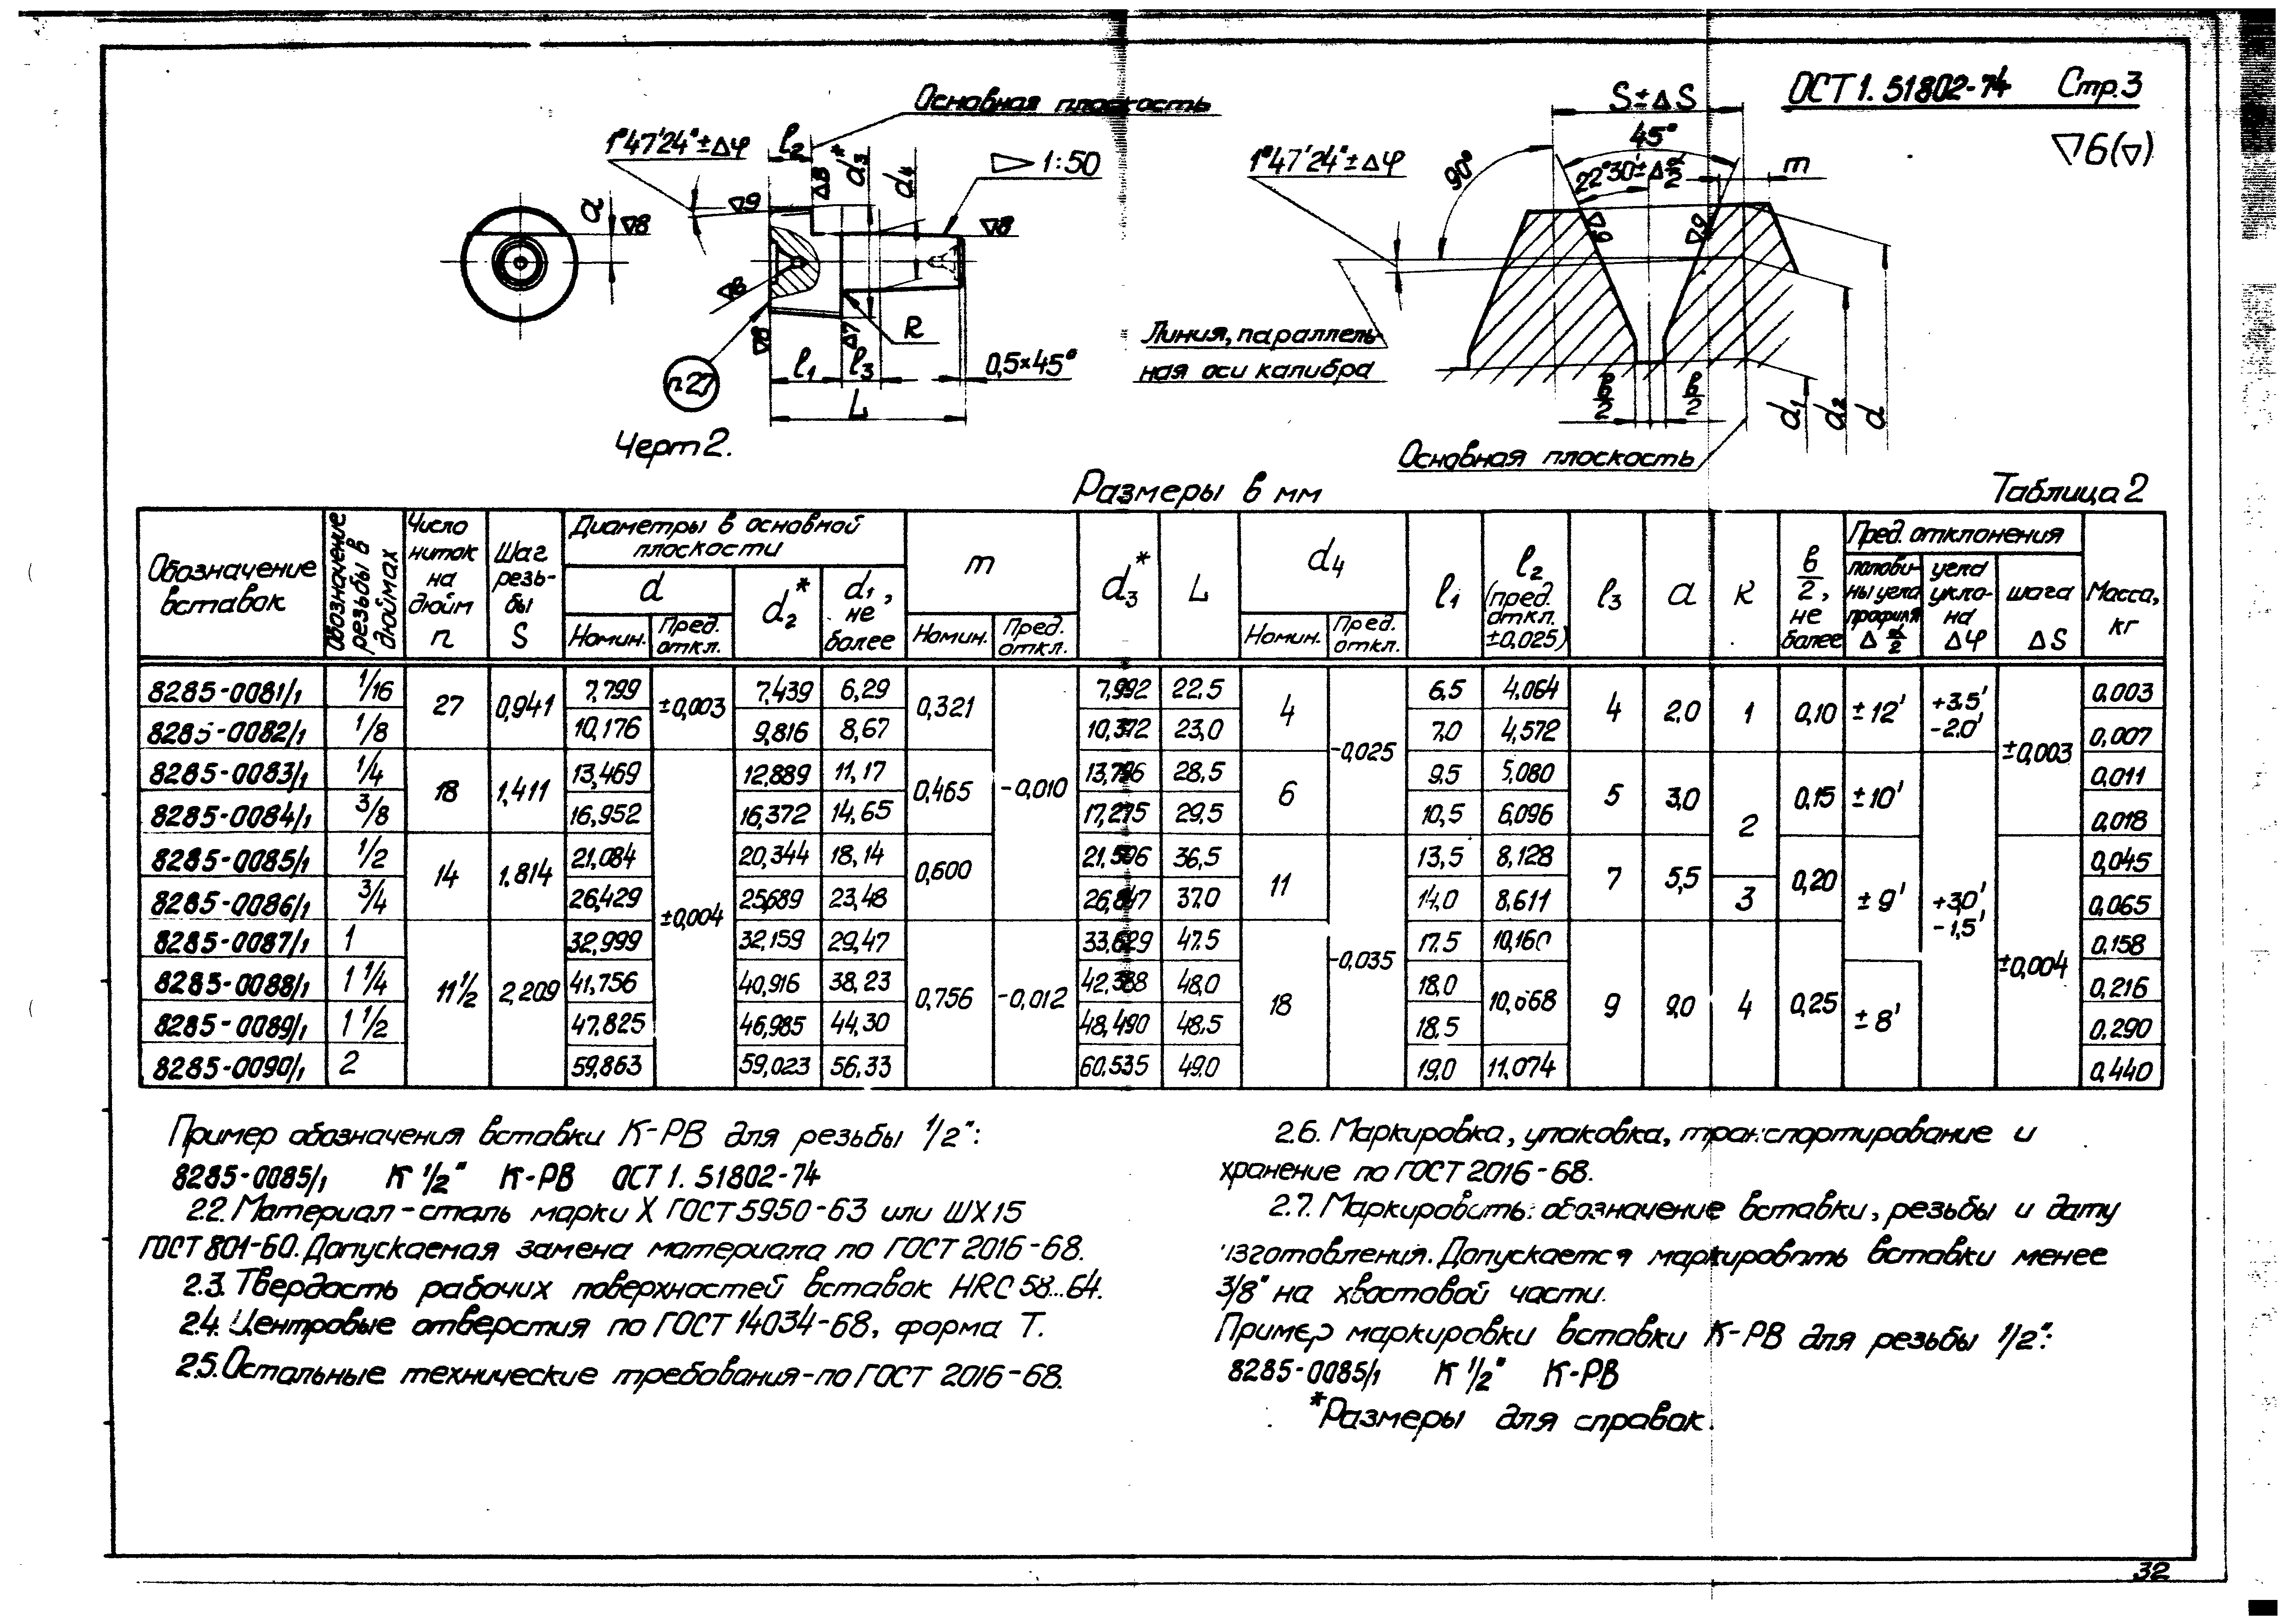 ОСТ 1. 51802-74 Стр.3
▽6(▽)
Основная плоскость
1°47'24"±Δφ
l2
d3*
d4
▷ 1:50
a
▽8
▽9
▽8
▽8
▽8
▽8
▽7
R
n27
l1
l3
0,5×45°
L
Черт 2.
S±ΔS
45°
22°30'±Δ α/2
m
1°47'24"±Δφ
90°
▽9
▽9
Линия, параллель-
ная оси калибра
в/2
в/2
d1
d2
d
Основная плоскость
Размеры в мм
Таблица 2
Обозначение вставок | Обозначение резьбы в дюймах | Число ниток на дюйм n | Шаг резь-бы S | Диаметры в основной плоскости | m | d3* | L | d4 | l1 | l2 (пред. откл. ±0,025) | l3 | a | R | в/2, не более | Пред. отклонения | Масса, кг
d | d2* | d1, не более | половины угла профиля Δ α/2 | угла укло-на Δφ | шага ΔS
Номин. | Пред. откл. | Номин. | Пред. откл. | Номин. | Пред. откл.
8285-0081/1 1/16 27 0,941 7,799 ±0,003 7,439 6,29 0,321 -0,010 7,992 22,5 4 -0,025 6,5 4,064 4 2,0 1 0,10 ±12' +3,5' -2,0' ±0,003 0,003
8285-0082/1 1/8 10,176 9,816 8,67 10,372 23,0 7,0 4,572 0,007
8285-0083/1 1/4 18 1,411 13,469 ±0,004 12,889 11,17 0,465 13,796 28,5 6 9,5 5,080 5 3,0 2 0,15 ±10' +3,0' -1,5' 0,011
8285-0084/1 3/8 16,952 16,372 14,65 17,275 29,5 10,5 6,096 0,018
8285-0085/1 1/2 14 1,814 21,084 20,344 18,14 0,600 21,596 36,5 11 -0,035 13,5 8,128 7 5,5 0,20 ±9' ±0,004 0,045
8285-0086/1 3/4 26,429 25,689 23,48 26,947 37,0 14,0 8,611 3 0,065
8285-0087/1 1 11 1/2 2,209 32,999 32,159 29,47 0,756 -0,012 33,629 47,5 18 17,5 10,160 9 9,0 4 0,25 0,158
8285-0088/1 1 1/4 41,756 40,916 38,23 42,388 48,0 18,0 10,668 ±8' 0,216
8285-0089/1 1 1/2 47,825 46,985 44,30 48,490 48,5 18,5 0,290
8285-0090/1 2 59,863 59,023 56,33 60,535 49,0 19,0 11,074 0,440
Пример обозначения вставки К-РВ для резьбы 1/2":
8285-0085/1 К 1/2" К-РВ ОСТ 1. 51802-74
2.2. Материал-сталь марки Х ГОСТ 5950-63 или ШХ15
ГОСТ 801-60. Допускаемая замена материала по ГОСТ 2016-68.
2.3. Твердость рабочих поверхностей вставок HRC 58...64.
2.4. Центровые отверстия по ГОСТ 14034-68, форма Т.
2.5. Остальные технические требования-по ГОСТ 2016-68.
2.6. Маркировка, упаковка, транспортирование и
хранение по ГОСТ 2016-68.
2.7. Маркировать: обозначение вставки, резьбы и дату
изготовления. Допускается маркировать вставки менее
3/8" на хвостовой части.
Пример маркировки вставки К-РВ для резьбы 1/2":
8285-0085/1 К 1/2" К-РВ
*Размеры для справок.
32